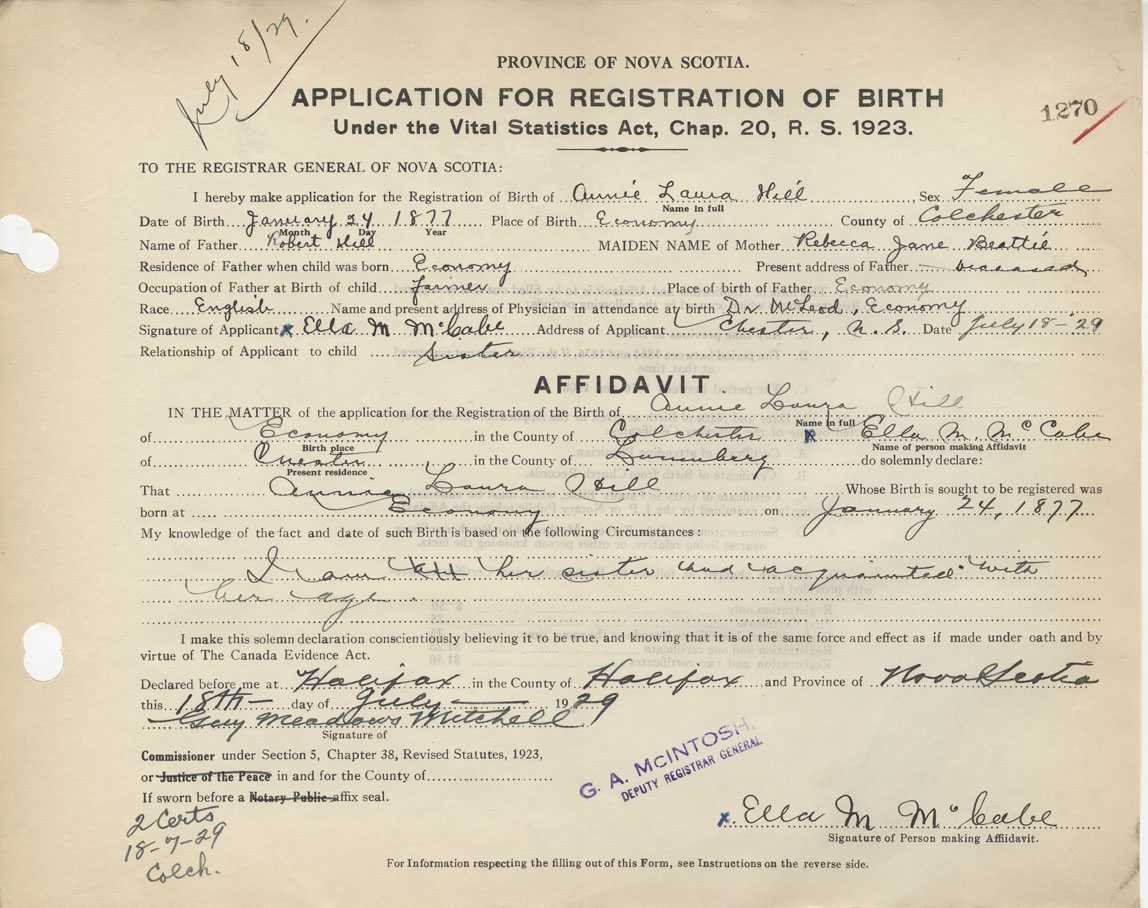 July 18/29.
PROVINCE OF NOVA SCOTIA.
APPLICATION FOR REGISTRATION OF BIRTH
1270
Under the Vital Statistics Act, Chap. 20, R. S. 1923.
TO THE REGISTRAR GENERAL OF NOVA SCOTIA:
I hereby make application for the Registration of Birth of Annie Laura Hill, Sex Female
Name in full
Date of Birth January 24 1877 Place of Birth Economy County of Colchester
Month Day Year
Name of Father Robert Hill MAIDEN NAME of Mother Rebecca Jane Beattie
Residence of Father when child was born Economy Present address of Father deceased
Occupation of Father at Birth of child farmer Place of birth of Father Economy
Race English Name and present address of Physician in attendance at birth Dr McLeod, Economy
Signature of Applicant x Ella M McCabe Address of Applicant Chester, N.S. Date July 18-'29
Relationship of Applicant to child Sister
AFFIDAVIT
IN THE MATTER of the application for the Registration of the Birth of Annie Laura Hill
Name in full
of Economy in the County of Colchester x Ella M. McCabe
Birth place Name of person making Affidavit
of Chester in the County of Lunenberg do solemnly declare:
Present residence
That Annie Laura Hill Whose Birth is sought to be registered was
born at Economy on January 24, 1877
My knowledge of the fact and date of such Birth is based on the following Circumstances:
I am her sister and acquainted with
her age
I make this solemn declaration conscientiously believing it to be true, and knowing that it is of the same force and effect as if made under oath and by
virtue of The Canada Evidence Act.
Declared before me at Halifax in the County of Halifax and Province of Nova Scotia
this 18th day of July 1929
Guy Meadows Mitchell
Signature of
Commissioner under Section 5, Chapter 38, Revised Statutes, 1923,
or Justice of the Peace in and for the County of
If sworn before a Notary Public affix seal.
G. A. McINTOSH,
DEPUTY REGISTRAR GENERAL
x. Ella M McCabe
Signature of Person making Affidavit.
2 Certs
18-7-29
Colch.
For Information respecting the filling out of this Form, see Instructions on the reverse side.